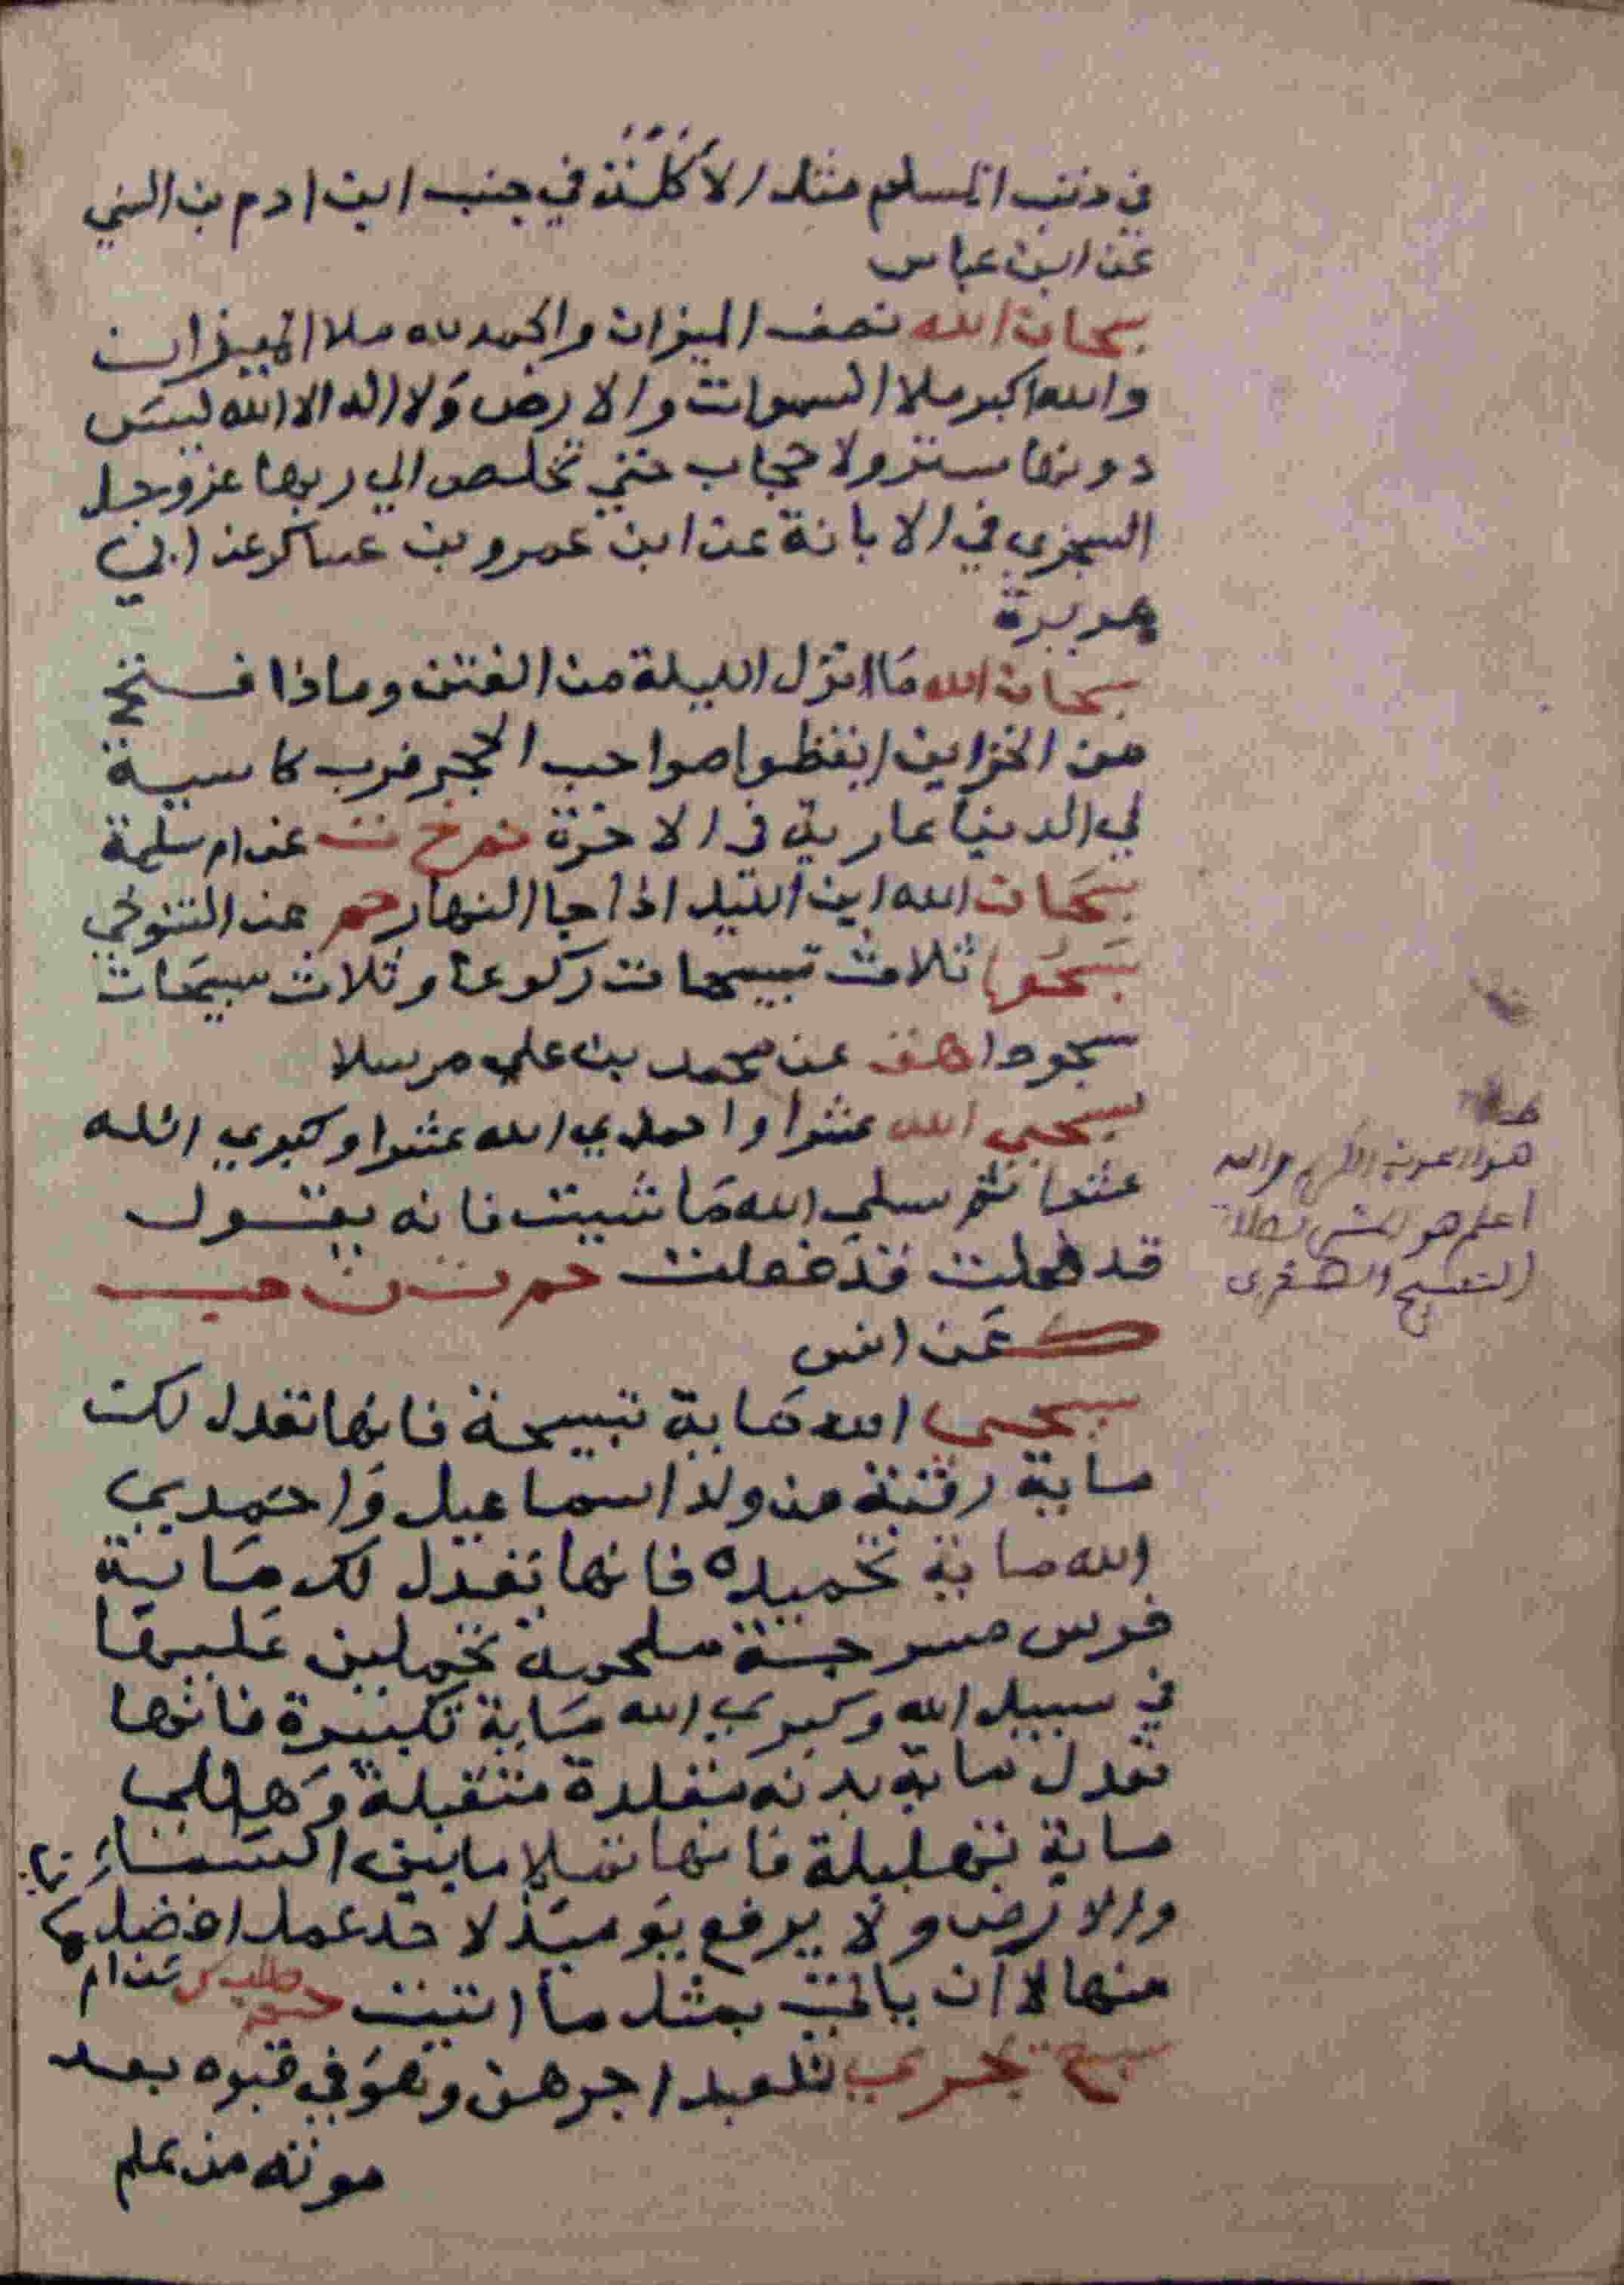 في ذنب المسلم مثل الاكلة في جنب ابن ادم بن السني
عن ابن عباس
سبحان الله نصف الميزان والحمد لله ملا الميزان
والله اكبر ملا السموات والارض وَلا اله الا الله ليسَ
دونها ستر ولا حجاب حتي تخلص الي ربها عز وجل
السجزي في الابانة عن ابن عمرو بن عساكر عن ابي
هريرة
سبحان الله مَا انزل الليلة من الفتن وماذا فتح
من الخزاين ايقظوا صواحب الحجر فرب كاسية
في الدنيا عارية في الاخرة حم خ ت عن ام سلمة
سبحَان الله اين الليل اذا جا النهار حم عن التنوخي
سَبحُوا ثلاث تسبيحات ركوعا وثلاث سبيحَات
سجودا هق عن محمد بن علي مرسلا
سبحي الله عشرا واحمدي الله عشرا وكبري الله
عشرا ثم سلي الله مَا شيت فانه يقول
قد فعلت قد فعلت حم ت ن حب
ك عَن انس
سبحي الله مَاية تسبيحة فانها تعدل لك
ماية رقبة من ولد اسماعيل وَاحمَدي
الله ماية تحميده فانها تعدل لك مَاية
فرس مسرجة ملجمة تحملين عَليهَا
في سبيل الله وكبري الله مَاية تكبيرة فانها
تعدل ماية بدنه مقلدة متقبلة وَهللي
ماية تهليلة فانها تملا ما بين السَمَاء
والارض ولا يرفع يَوميذ لاحد عمل افضل
منها الا ان ياتي بمثل ما اتيت حم طب ك عن ام
سبع تجري للعبد اجرهن وهوَ في قبره بعد
موته من علم
اعلم هو صلاة
التسبيح الصغرى